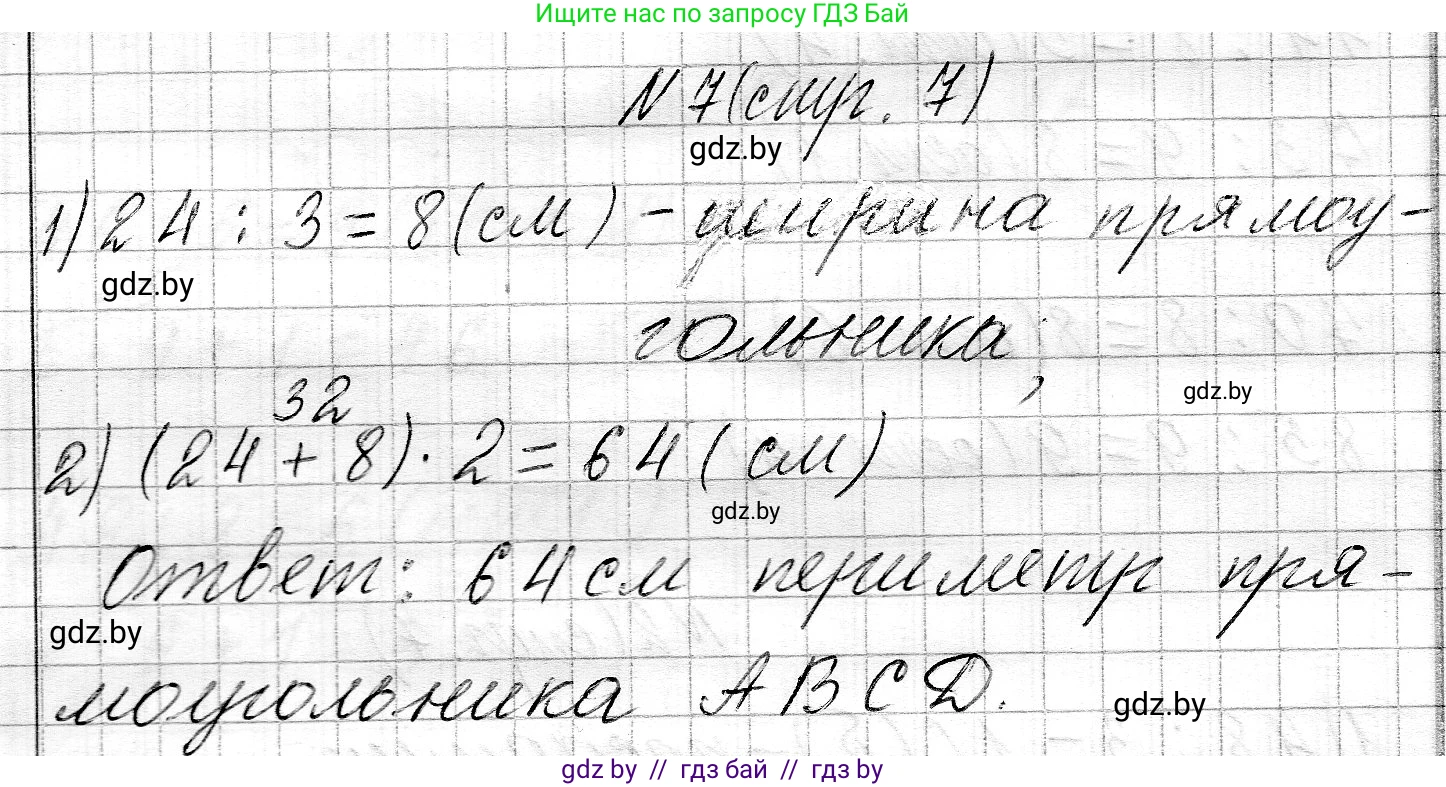 Ищите нас по запросу ГДЗ Бай
N 7 (стр. 7)
gdz.by
1) 24 : 3 = 8 (см) - ширина прямоу-
gdz.by
гольника;
gdz.by
32
2) (24 + 8) · 2 = 64 (см)
gdz.by
Ответ: 64 см периметр пря-
gdz.by
моугольника ABCD.
gdz.by
gdz by // гдз бай // гдз by